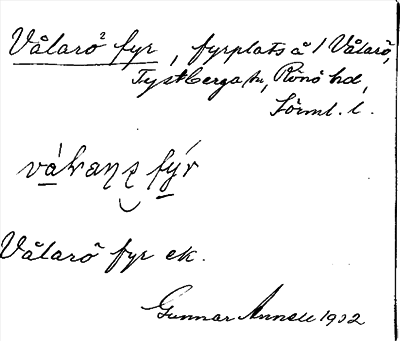 Vålarö² fyr, fyrplats å / Vålarö,
Tystberga sn, Rönö hd,
Sörml. l.
fýr
Vålarö fyr ek.
Gunnar 1932